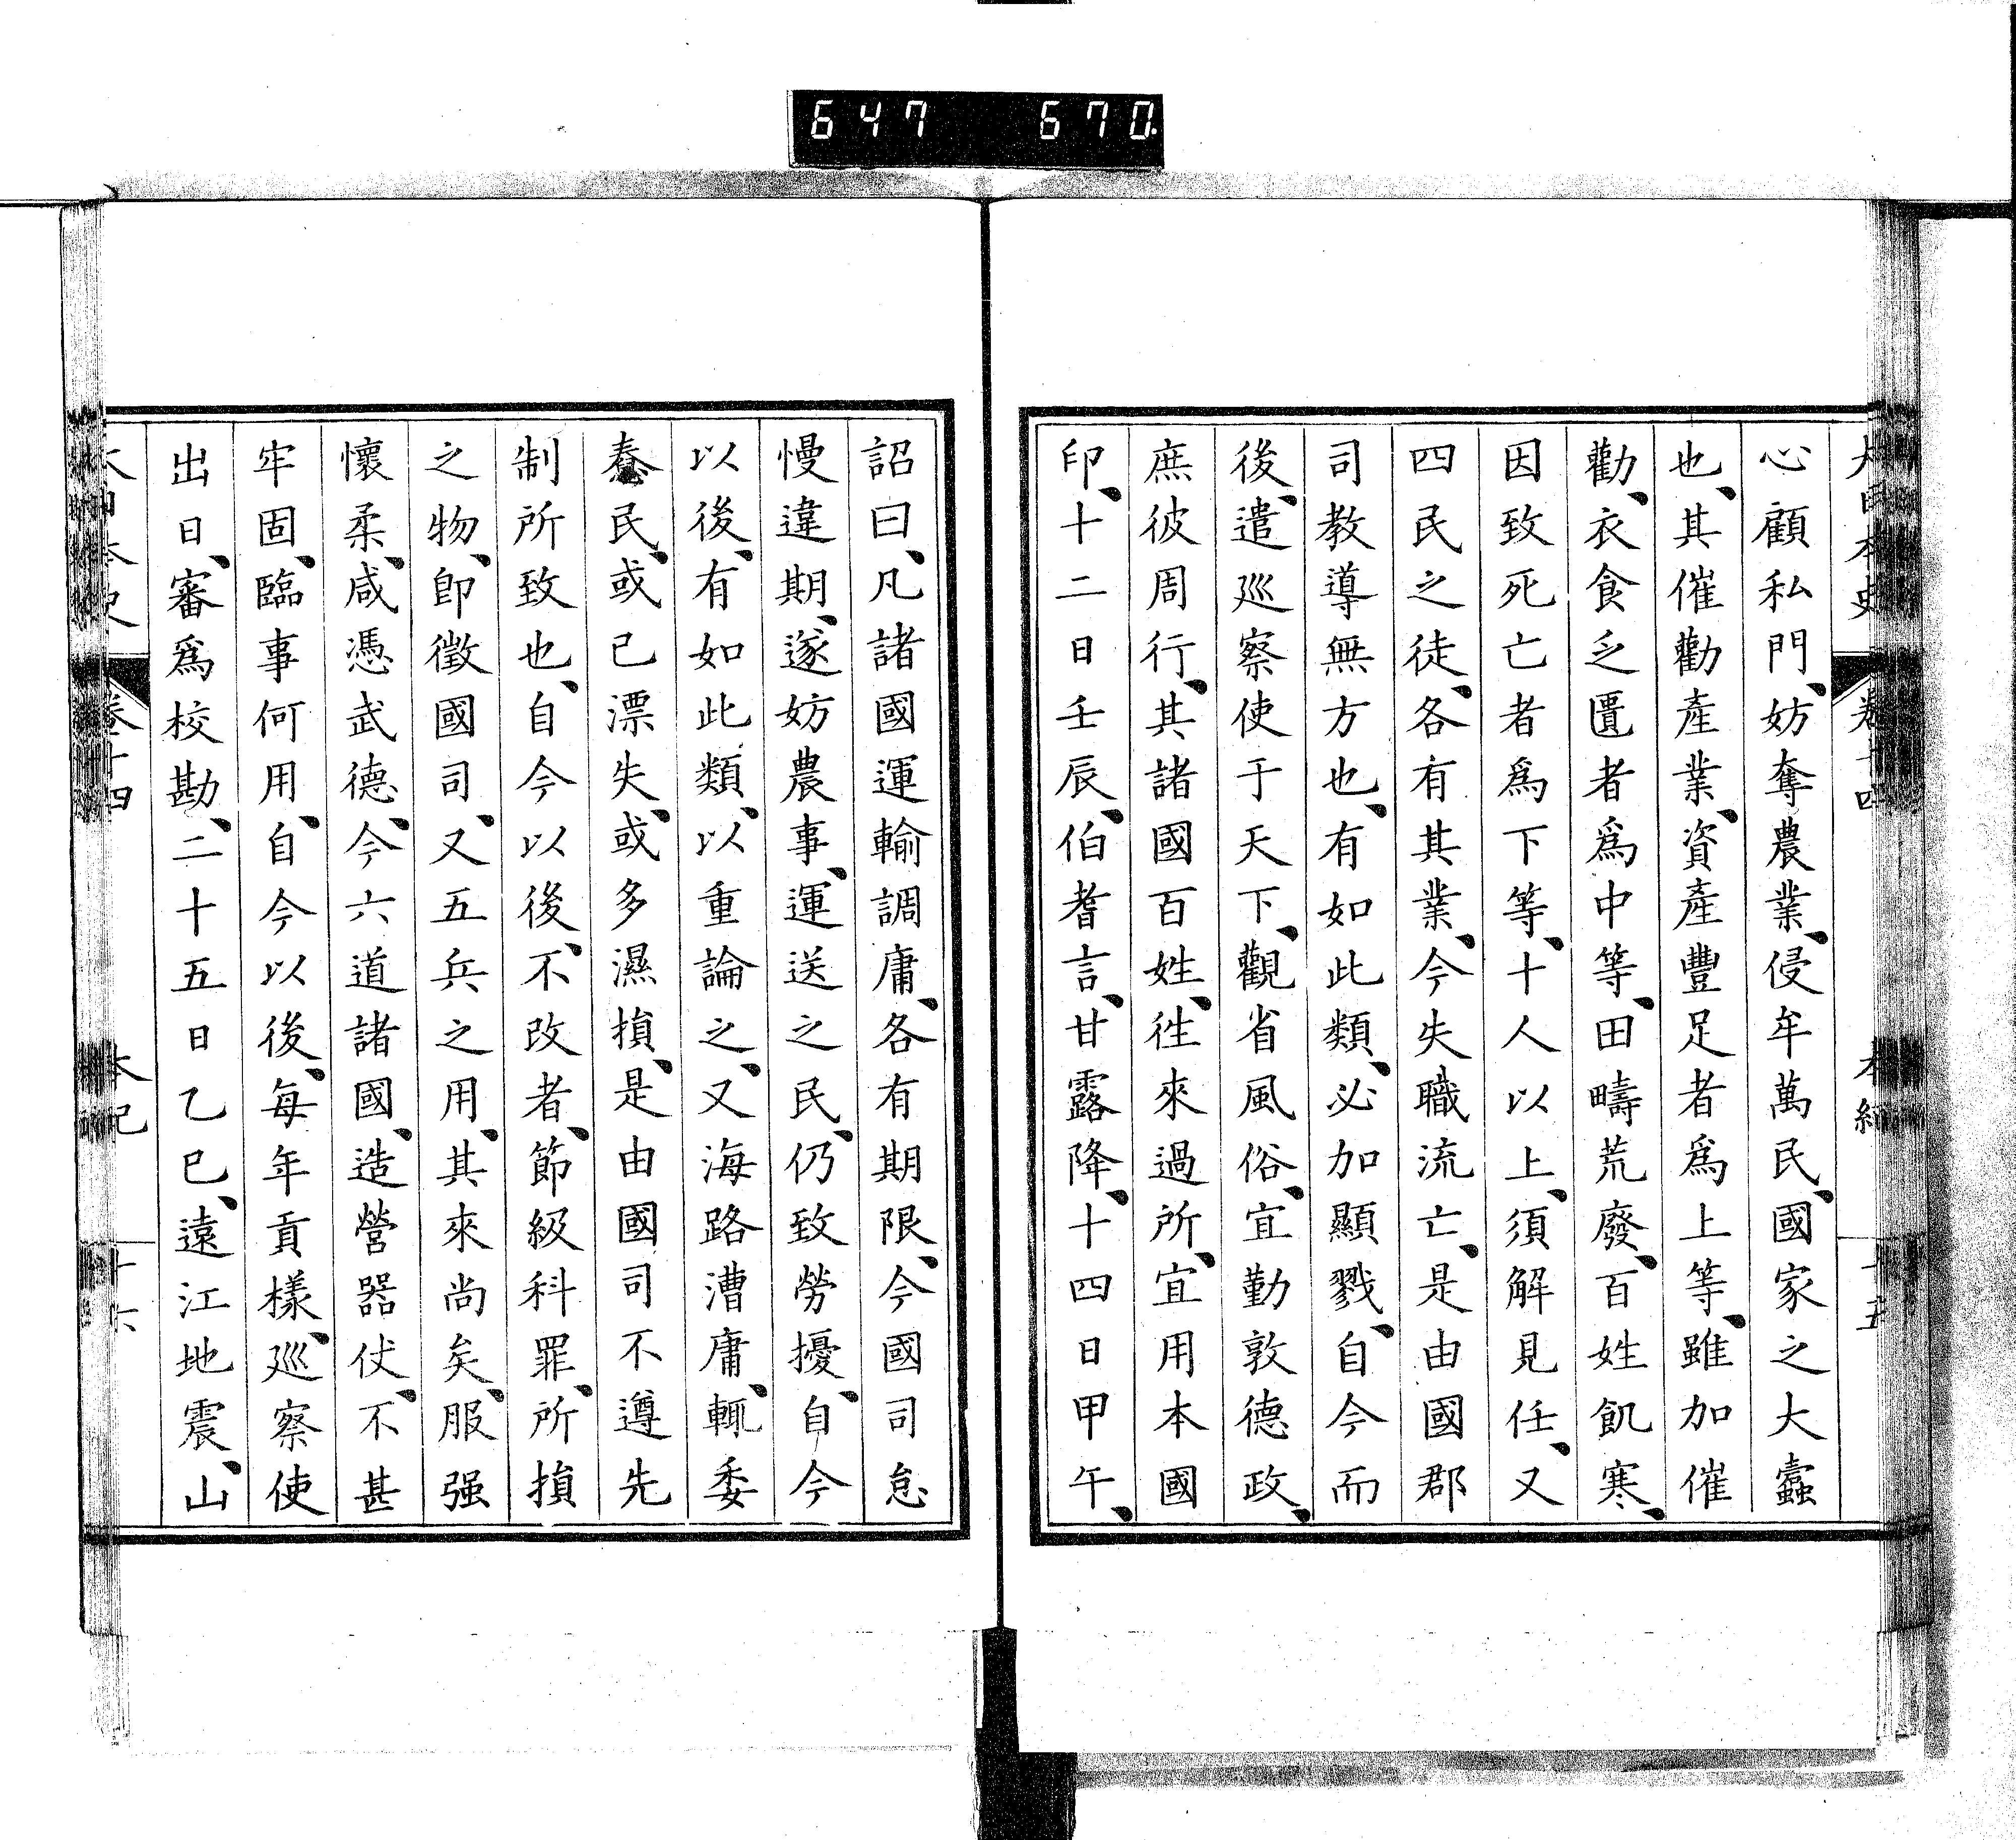 647 670.
大日本史 卷十四 本紀 十五
心顧私門、妨奪農業、侵牟萬民、國家之大蠹
也、其催勸產業、資產豐足者爲上等、雖加催
勸、衣食乏匱者爲中等、田疇荒廢、百姓飢寒、
因致死亡者爲下等、十人以上、須解見任、又
四民之徒、各有其業、今失職流亡、是由國郡
司教導無方也、有如此類、必加顯戮、自今而
後、遣巡察使于天下、觀省風俗、宜勤敦德政、
庶彼周行、其諸國百姓、往來過所、宜用本國
印、十二日壬辰、伯耆言、甘露降、十四日甲午、
詔曰、凡諸國運輸調庸、各有期限、今國司怠
慢違期、遂妨農事、運送之民、仍致勞擾、自今
以後、有如此類、以重論之、又海路漕庸、輒委
惷民、或已漂失、或多濕損、是由國司不遵先
制所致也、自今以後、不改者、節級科罪、所損
之物、卽徵國司、又五兵之用、其來尚矣、服强
懷柔、咸憑武德、今六道諸國、造營器仗、不甚
牢固、臨事何用、自今以後、每年貢樣、巡察使
出日、審爲校勘、二十五日乙巳、遠江地震、山
大日本史 卷十四 本紀 十六